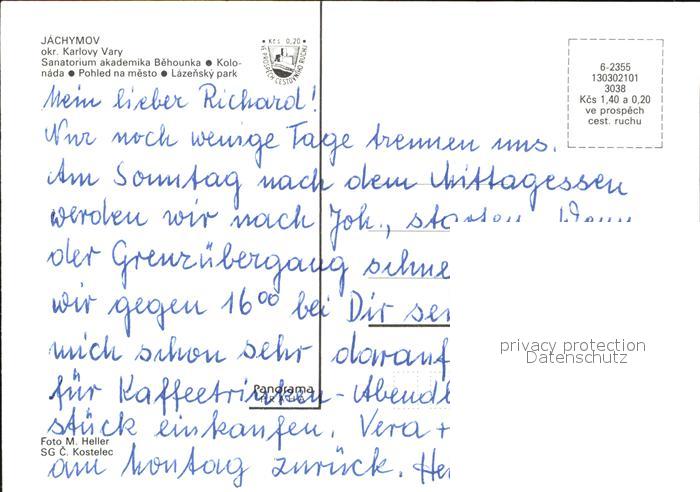 JÁCHYMOV
okr. Karlovy Vary
Sanatorium akademika Běhounka ● Kolo-
náda ● Pohled na město ● Lázeňský park
• Kčs 0,20 •
VE PROSPĚCH CESTOVNÍHO RUCHU
6-2355
130302101
3038
Kčs 1,40 a 0,20
ve prospěch
cest. ruchu
Mein lieber Richard!
Nur noch wenige Tage trennen uns.
Am Sonntag nach dem Mittagessen
werden wir nach Joh., starten. Wenn
der Grenzübergang schne
wir gegen 16⁰⁰ bei Dir sei
mich schon sehr darauf
für Kaffeetrinken - Abendb
stück einkaufen. Vera +
am Montag zurück. He
Panorama
Foto M. Heller
SG Č. Kostelec
privacy protection
Datenschutz